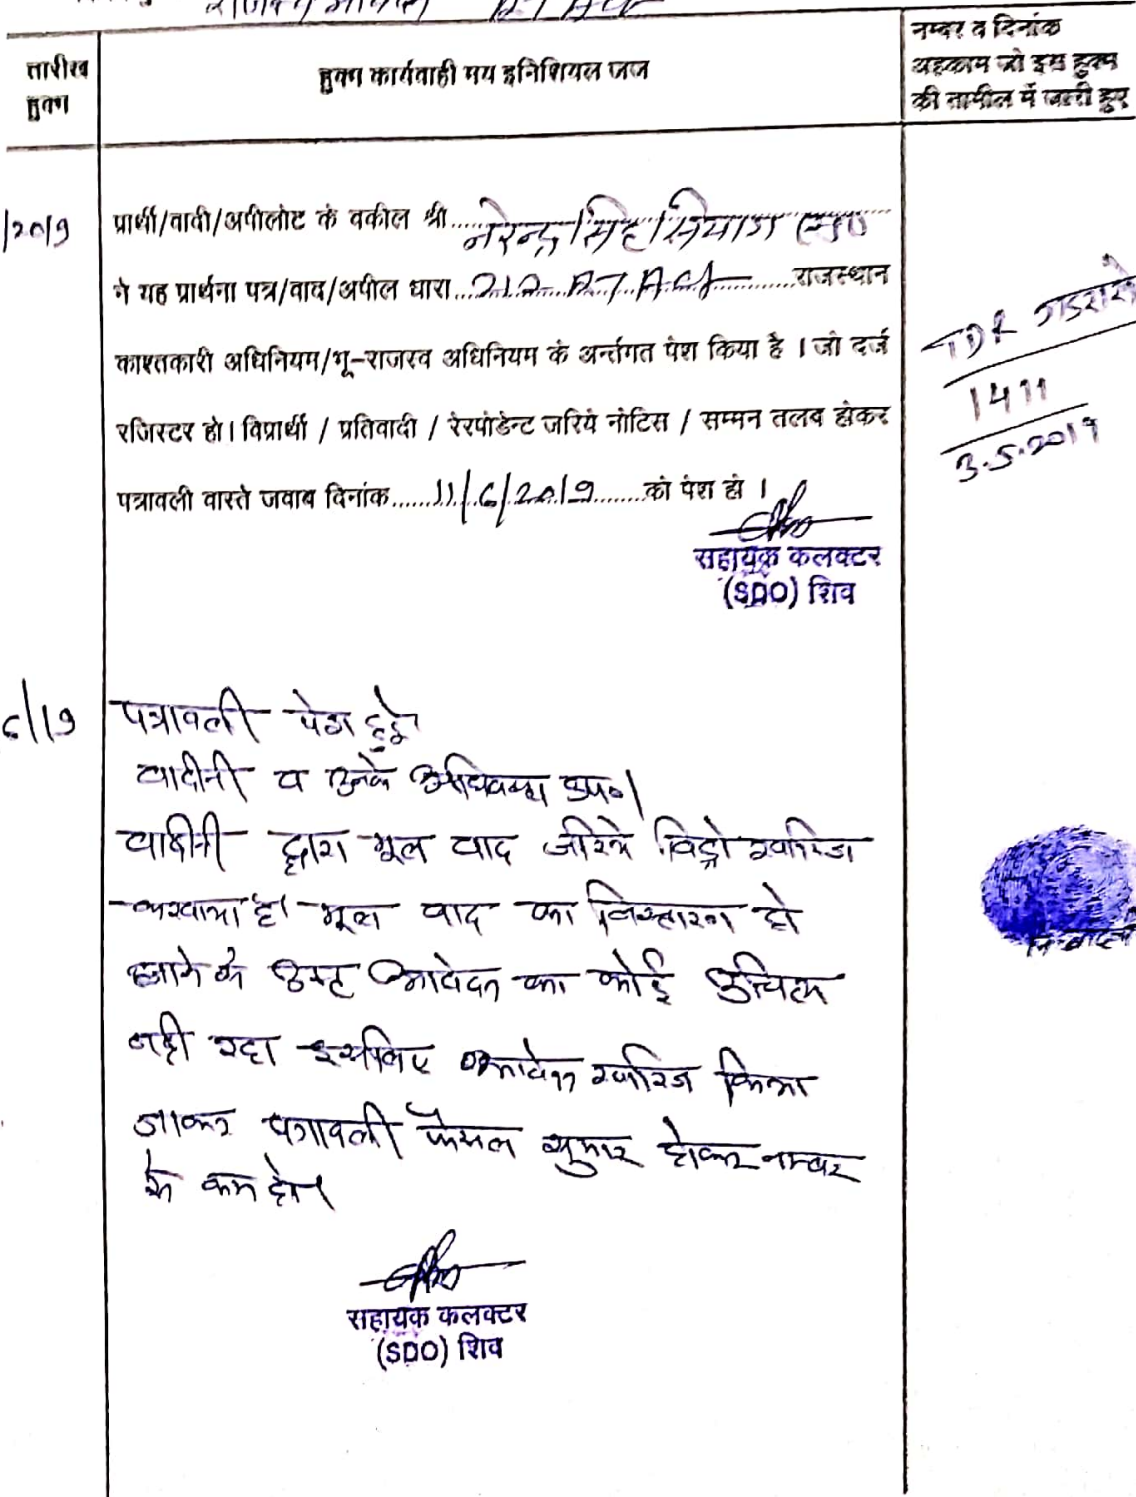 तारीख हुक्म
हुक्म कार्यवाही मय इनिशियल जज
नम्बर व दिनांक
अहकाम जो इस हुक्म
की तामील में जारी हुए
/2019
प्रार्थी/वादी/अपीलांट के वकील श्री.....नरेन्द्रसिंह सियाग
ने यह प्रार्थना पत्र/वाद/अपील धारा...212 RT Act......राजस्थान
काश्तकारी अधिनियम/भू-राजस्व अधिनियम के अर्न्तगत पेश किया है । जो दर्ज
रजिस्टर हो। विप्रार्थी / प्रतिवादी / रेस्पोडेन्ट जरिये नोटिस / सम्मन तलब होकर
पत्रावली वास्ते जवाब दिनांक......11/6/2019......को पेश हो ।
सहायक कलक्टर
(SDO) शिव
TDR
1411
3.5.2019
6/19
पत्रावली पेश हुई
वादीनी व उनके अधिवक्ता उप०।
वादीनी द्वारा मूल वाद जरिये विड्रो खारिज
करवाया है। मूल वाद का निस्तारण हो
जाने के आवेदन का कोई औचित्य
नही रहा इसलिए आवेदन खारिज किया
जाकर पत्रावली फैसल शुमार होकर नम्बर
से कम हो।
सहायक कलक्टर
(SDO) शिव